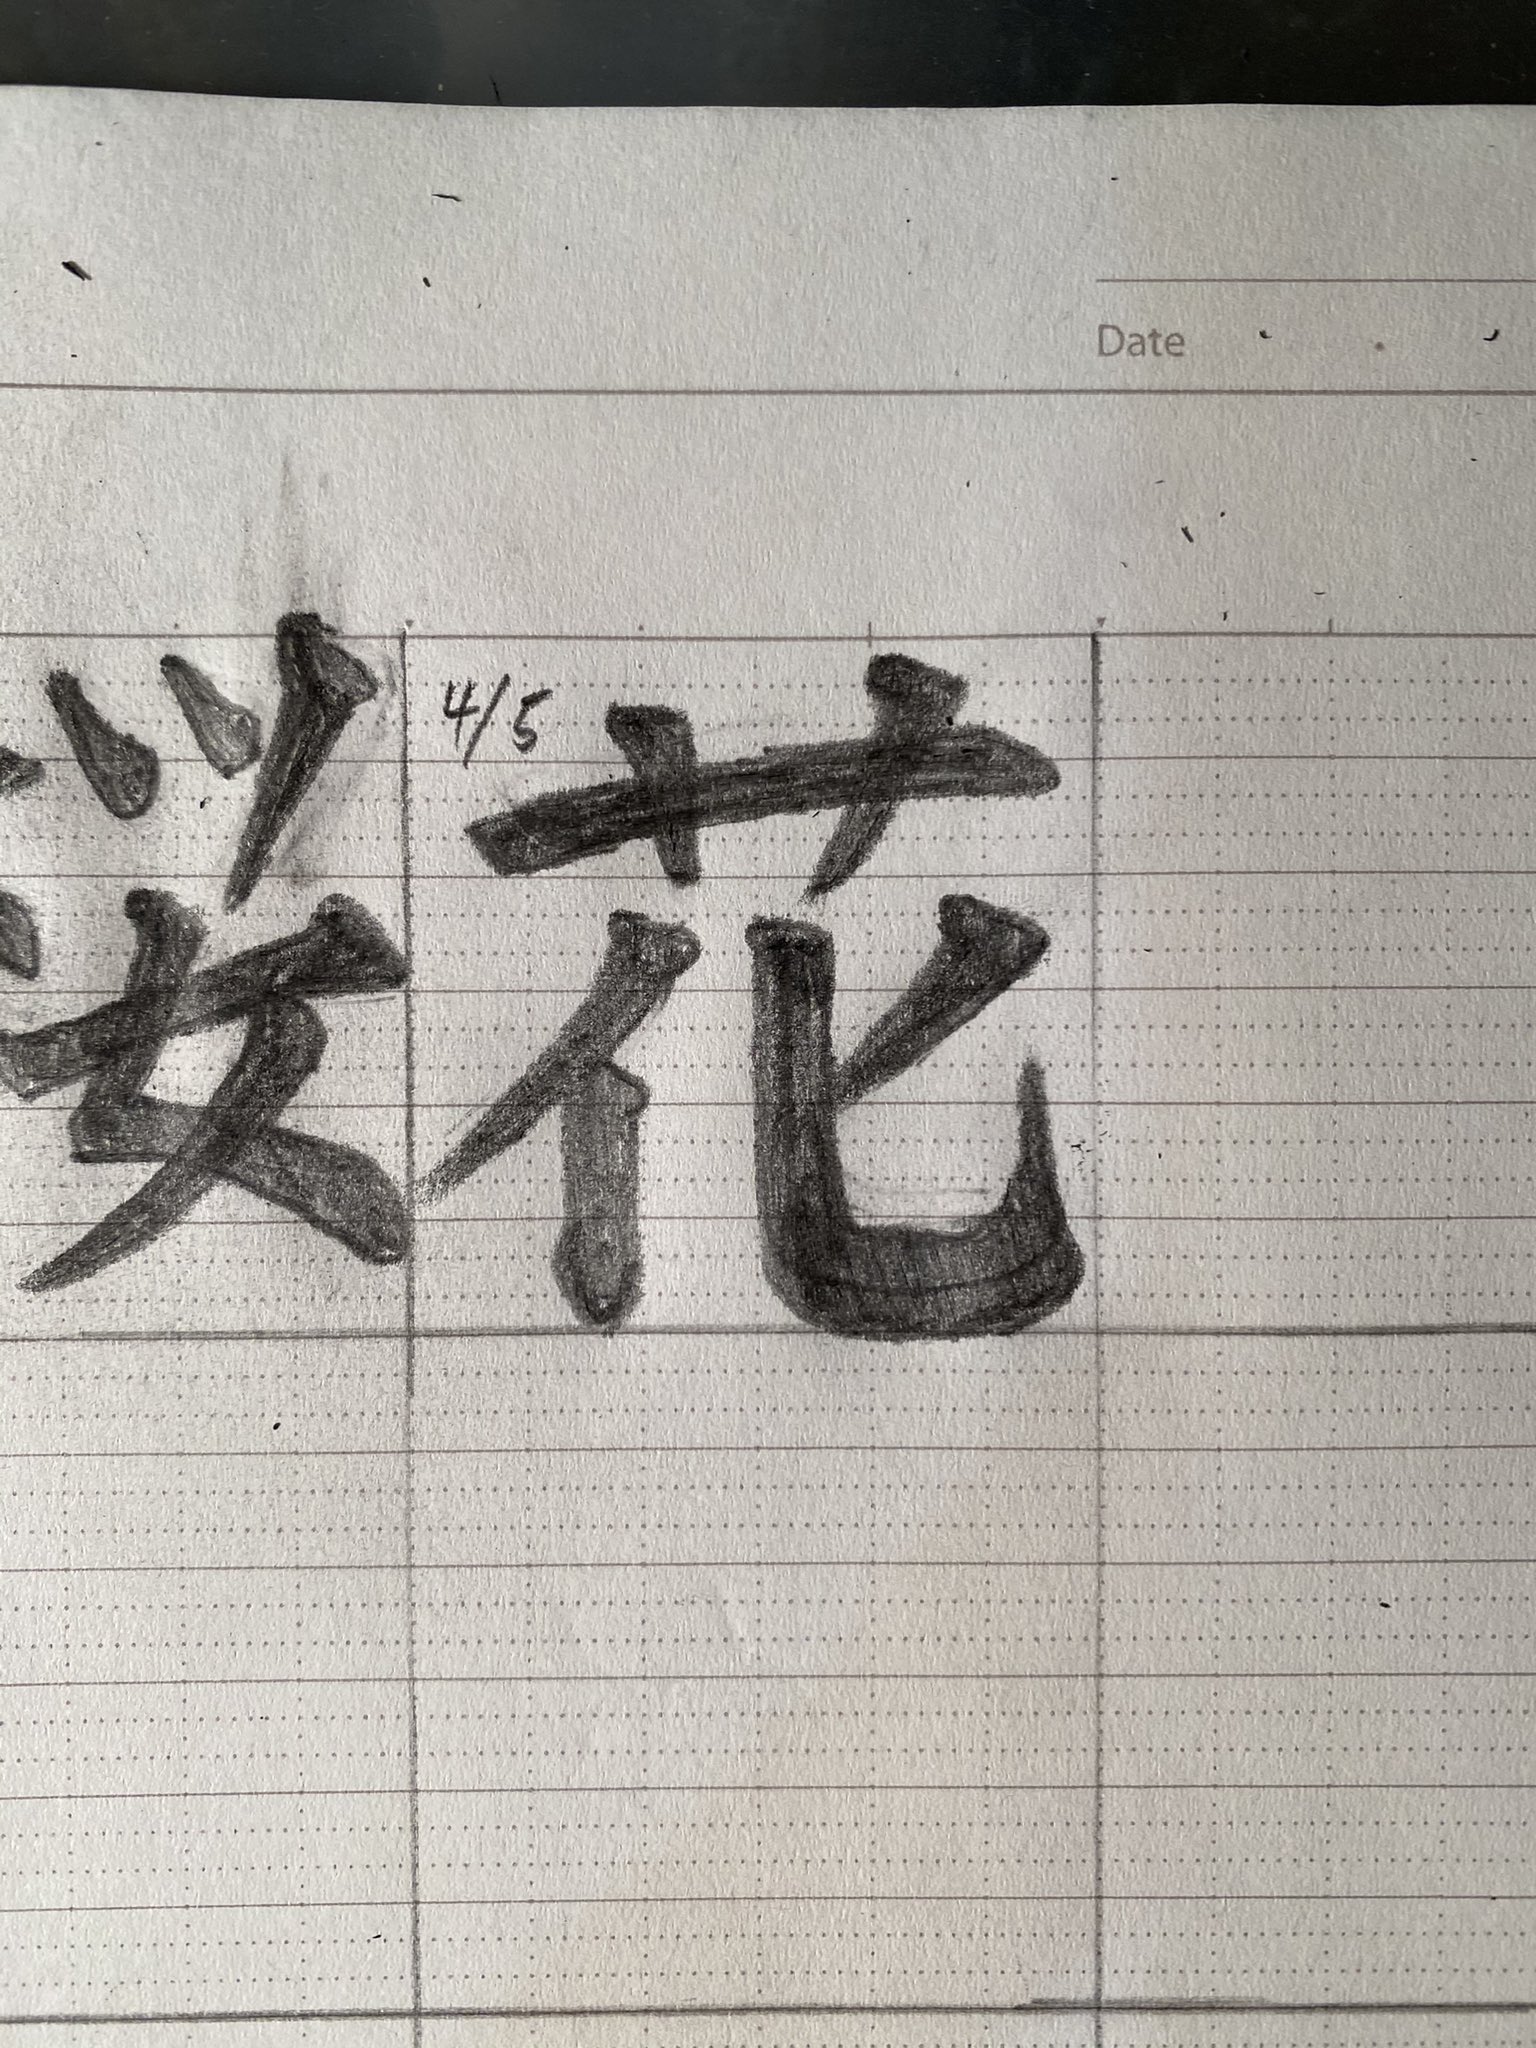 Date
4/5
桜花